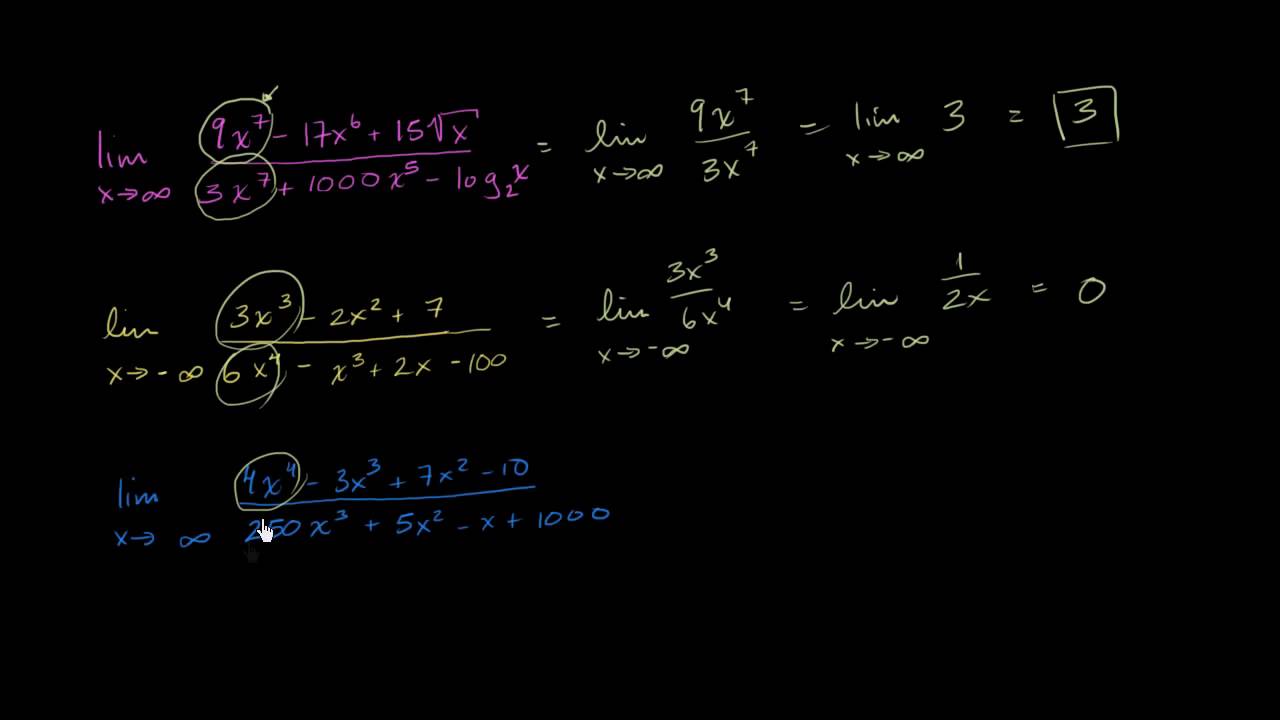 lim x→∞ (9x⁷ - 17x⁶ + 15√x)/(3x⁷ + 1000x⁵ - log₂x) = lim x→∞ 9x⁷/3x⁷ = lim x→∞ 3 = 3
lim x→-∞ (3x³ - 2x² + 7)/(6x⁴ - x³ + 2x - 100) = lim x→-∞ 3x³/6x⁴ = lim x→-∞ 1/2x = 0
lim x→∞ (4x⁴ - 3x³ + 7x² - 10)/(250x³ + 5x² - x + 1000)